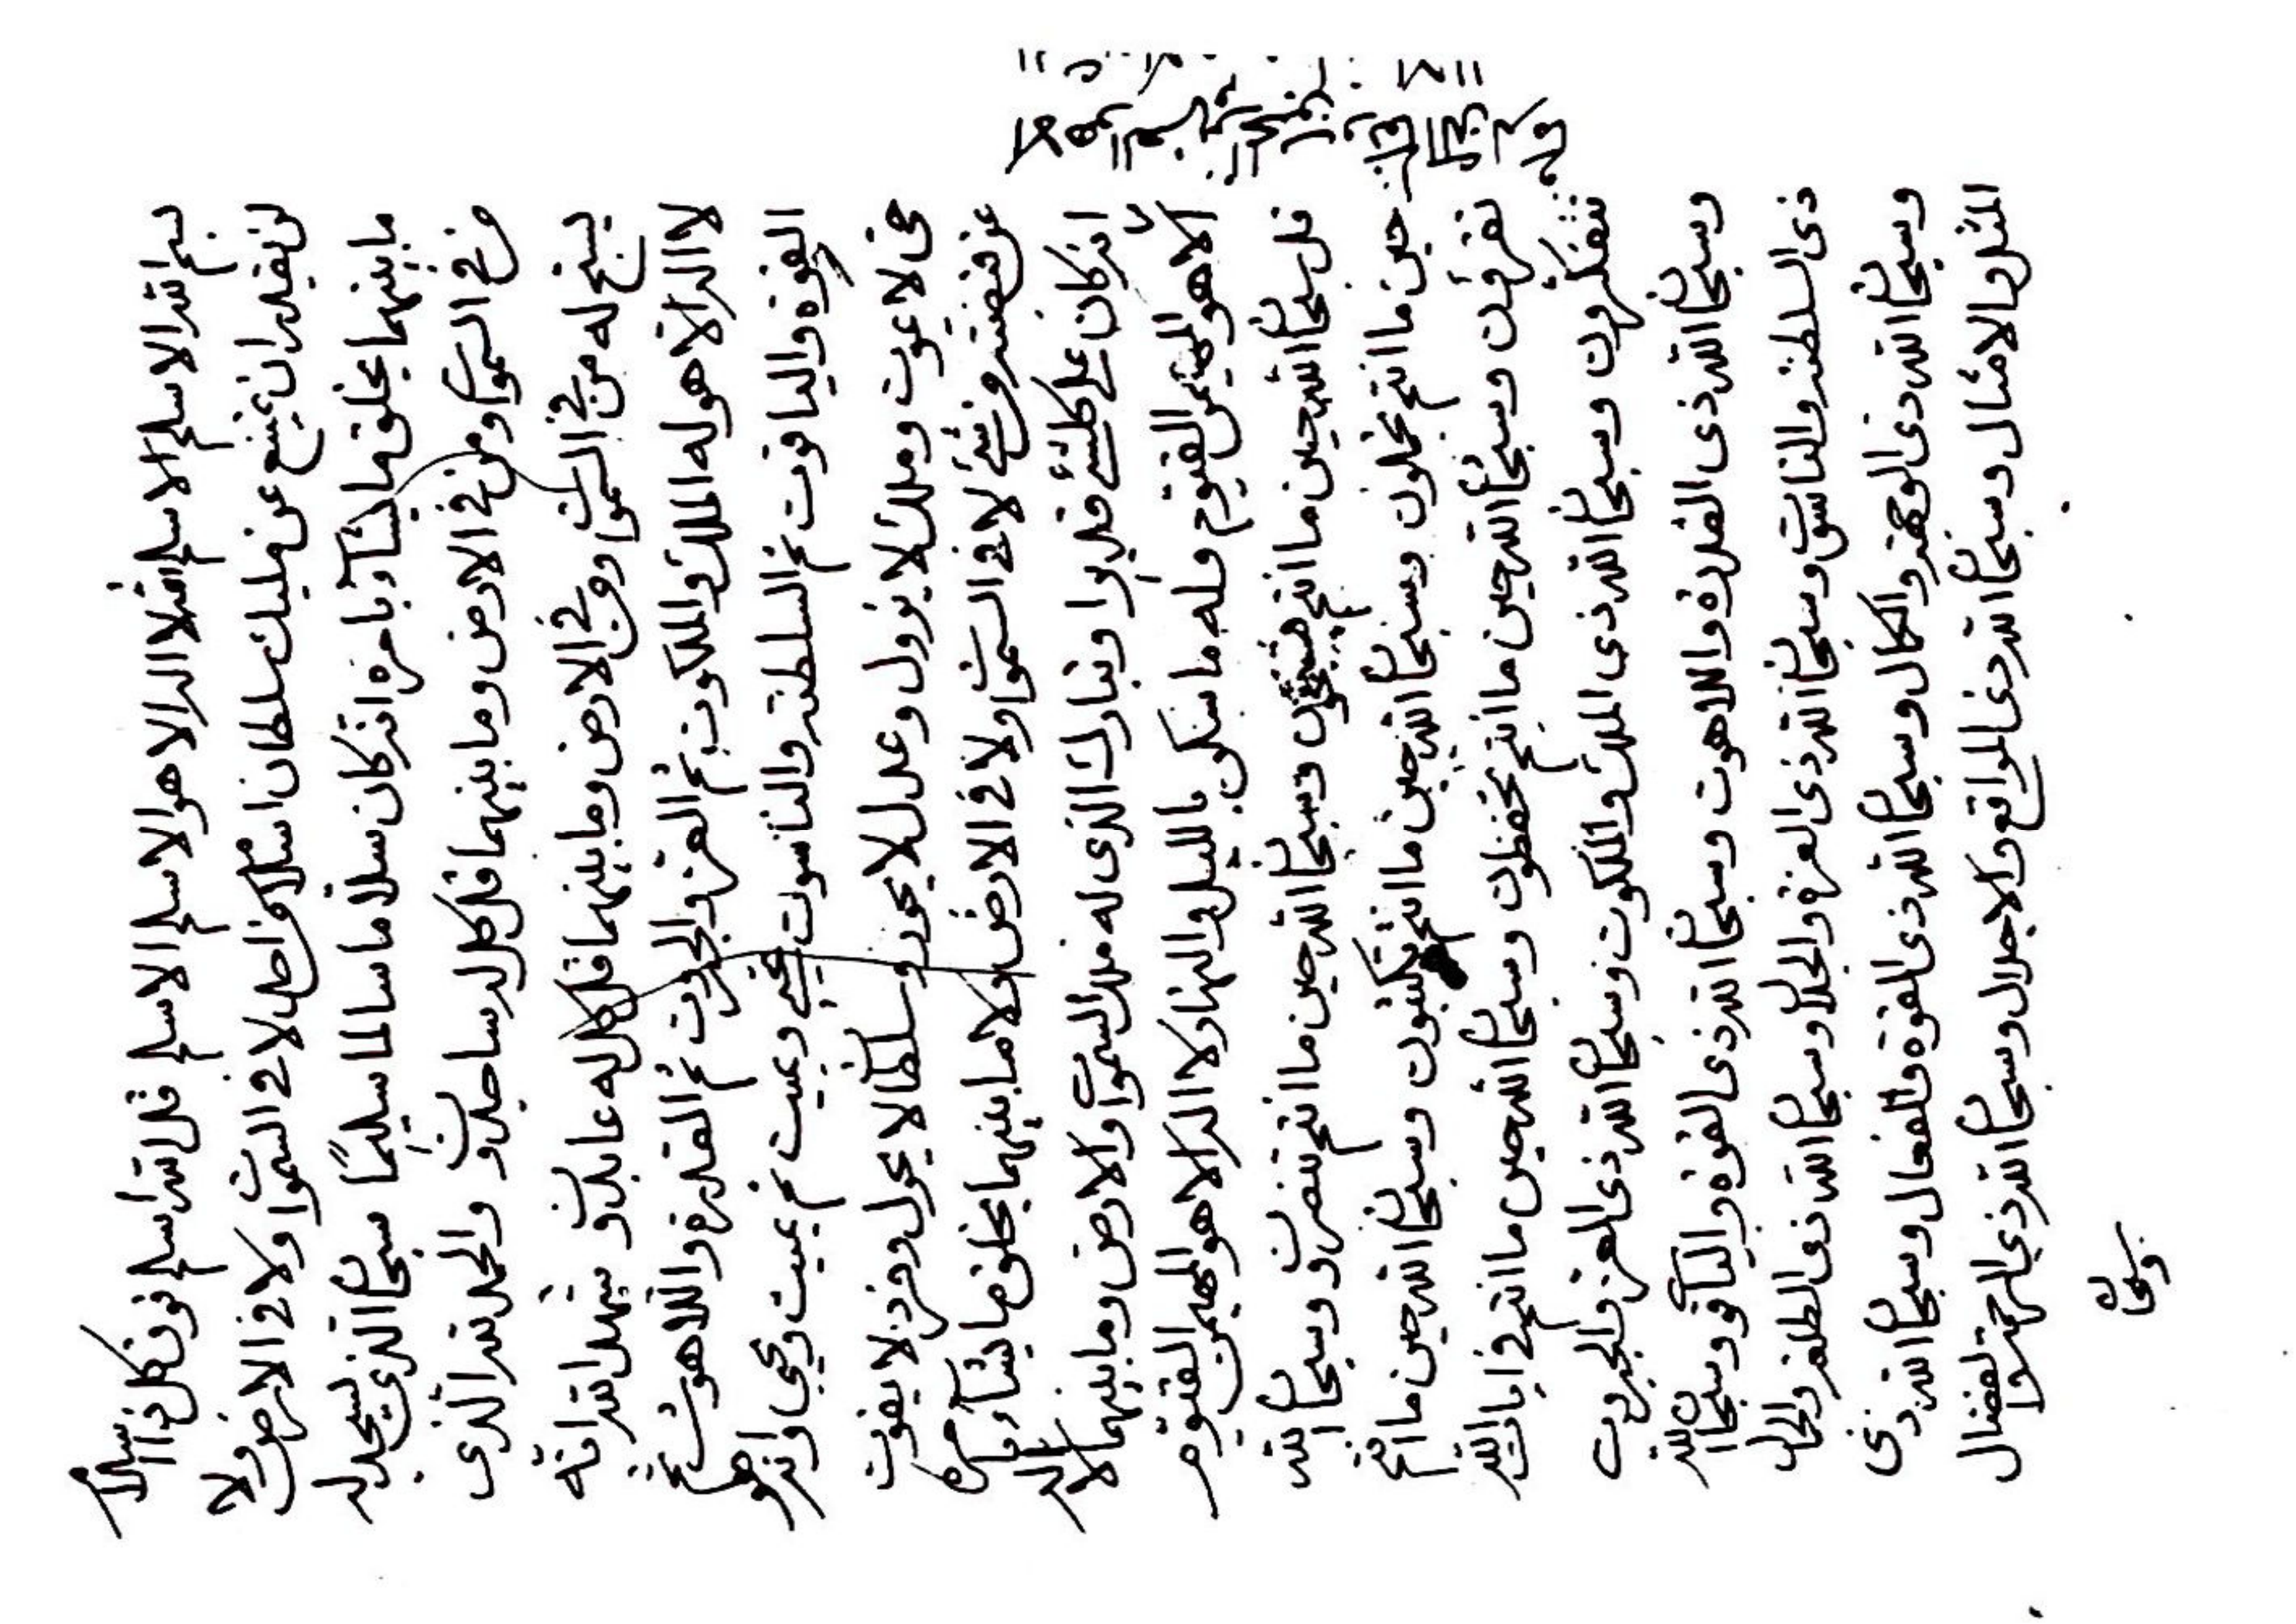 بسم الله الاسلم الاسلم الله لا اله الا هو الاسلم الاسلم قل الله اسلم فوق كل ذا اسلام
لن يقدر ان يمتنع عن مليك سلطان اسلامه من احد لا في السموات ولا في الارض ولا
ما بينهما يخلق ما يشآء بامره انه كان سلاما سالما سليمًا سبحان الذي يسجد له
من في السموات ومن في الارض وما بينهما قل كل له ساجدون والحمد لله الذى
يسبح له من في السموات ومن في الارض وما بينهما قل كل له عابدون شهد الله انه
لا اله الا هو له الملك والملكوت ثم العز والجبروت ثم القدرة واللاهوت ثم
القوة والياقوت ثم السلطنه والناسوت يحيي ويميت ثم يميت ويحيي وانه هو
حى لا يموت وملك لا يزول وعدل لا يجور وسلطان لا يحول وفرد لا يفوت
عن قبضته من شئ لا في السموات ولا في الارض ولا ما بينهما يخلق ما يشآء بامره
انه كان على كلشئ قديرا وتبارك الذى له ملك السموات والارض وما بينهما لا اله
الا هو المهيمن القيوم وله ما سكن بالليل والنهار لا اله الا هو المهيمن القيوم
قل سبحان الله حين ما انتم وسبحان الله حين ما انتم وسبحان الله
حين ما انتم وسبحان الله حين ما انتم وسبحان الله حين ما انتم
تقرؤن وسبحان الله حين ما انتم تحفظون وسبحان الله حين ما انتم في ايات الله
تتفكرون وسبحان الله ذى الملك والملكوت وسبحان الله ذى العز والجبروت
وسبحان الله ذى القدرة واللاهوت وسبحان الله ذى القوة والياقوت وسبحان الله
ذى السلطنه والناسوت وسبحان الله ذى العزة والجلال وسبحان الله ذى الطلعة والجمال
وسبحان الله ذى الوجهة والكمال وسبحان الله ذى القوة والفعال وسبحان الله ذى
المثل والامثال وسبحان الله ذى المواقع والاجلال وسبحان الله ذي الرحمة والفضال
وسبحان